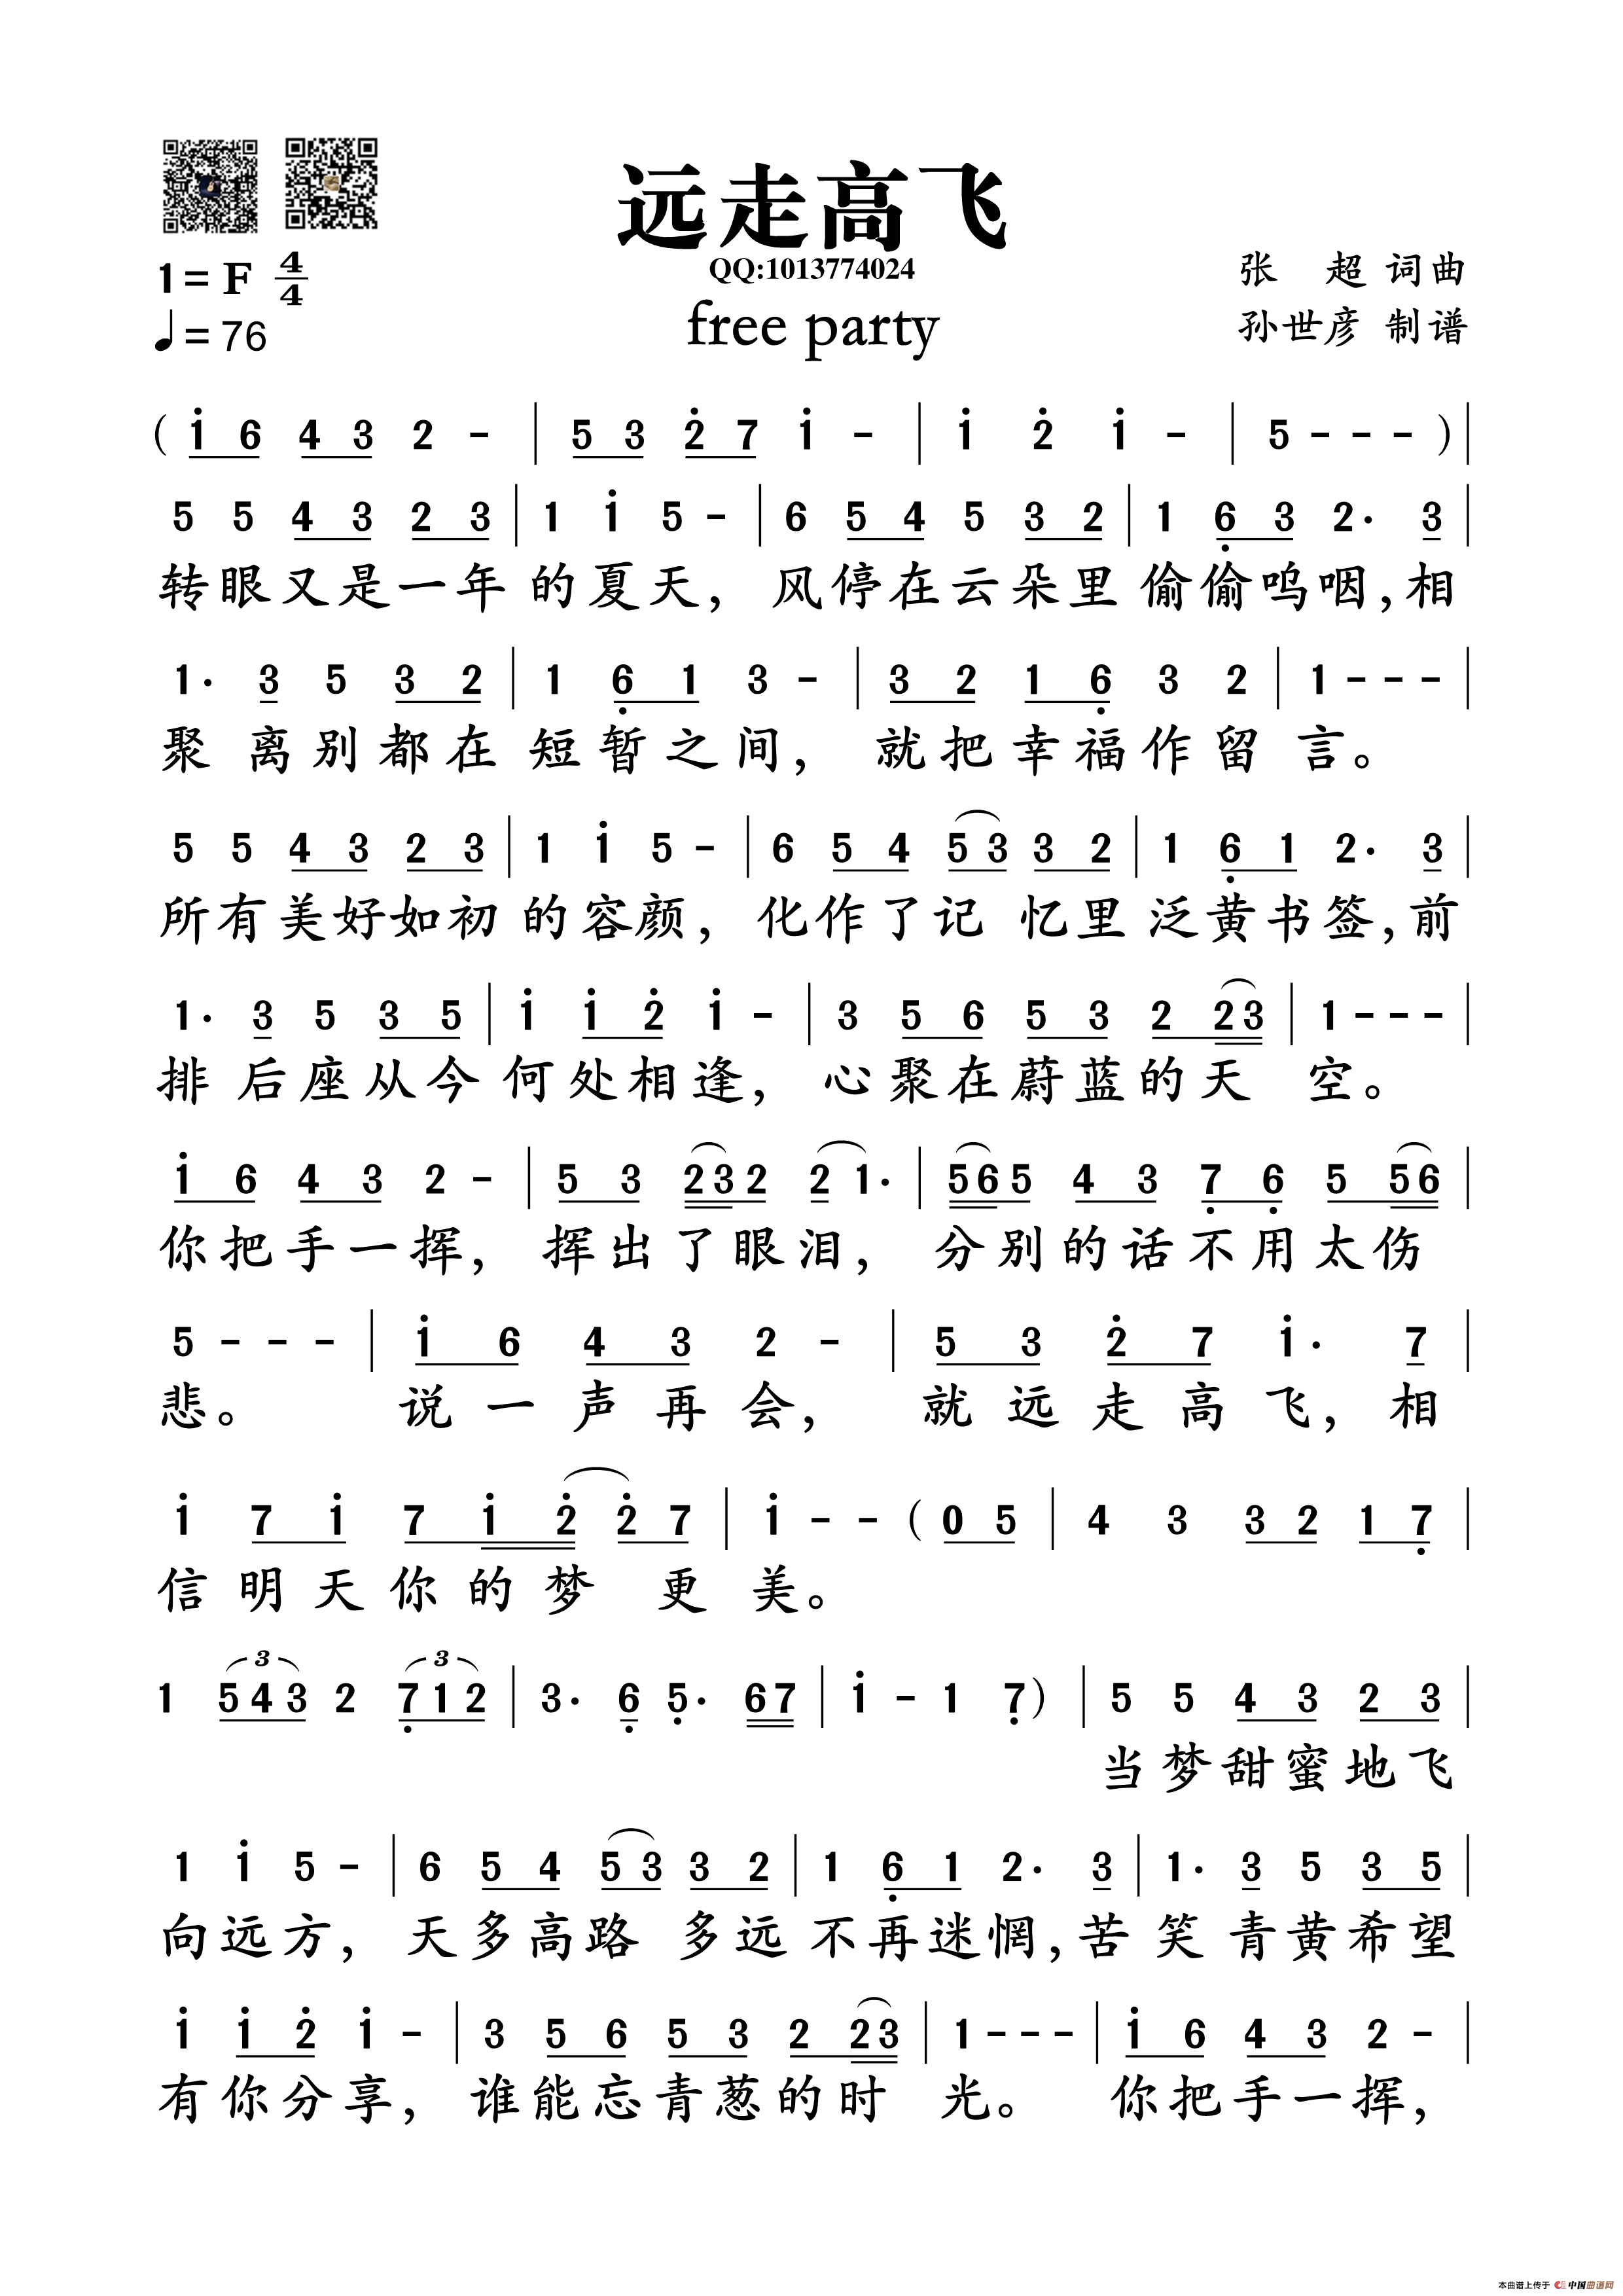 远走高飞
QQ:1013774024
free party
1=F 4/4
♩=76
张 超 词曲
孙世彦 制谱
( i 6 4 3 2 - | 5 3 2̇ 7 i - | i 2̇ i - | 5 - - - ) |
5 5 4 3 2 3 | 1 i 5 - | 6 5 4 5 3 2 | 1 6̣ 3 2· 3 |
转眼又是一年 的夏天， 风停在云朵里 偷偷呜咽，相
1· 3 5 3 2 | 1 6̣ 1 3 - | 3 2 1 6̣ 3 2 | 1 - - - |
聚 离别都在 短暂之间， 就把幸福作留 言。
5 5 4 3 2 3 | 1 i 5 - | 6 5 4 5 3 3 2 | 1 6̣ 1 2· 3 |
所有美好如初 的容颜， 化作了记 忆里 泛黄书签，前
1· 3 5 3 5 | i i 2̇ i - | 3 5 6 5 3 2 2 3 | 1 - - - |
排 后座从今 何处相逢， 心聚在蔚蓝的天 空。
i 6 4 3 2 - | 5 3 2 3 2 2 1· | 5 6 5 4 3 7̣ 6̣ 5 5 6 |
你把手一挥， 挥出了眼泪， 分别的话不用太伤
5 - - - | i 6 4 3 2 - | 5 3 2̇ 7 i· 7 |
悲。 说一声再会， 就远走高飞，相
i 7 i 7 i 2̇ 2̇ 7 | i - - ( 0 5 | 4 3 3 2 1 7̣ |
信明天你的梦 更 美。
1 5 4 3 2 7̣ 1 2 | 3· 6̣ 5̣· 6 7 | i - 1 7̣ ) | 5 5 4 3 2 3 |
3 3
当梦甜蜜地飞
1 i 5 - | 6 5 4 5 3 3 2 | 1 6̣ 1 2· 3 | 1· 3 5 3 5 |
向远方， 天多高路 多远 不再迷惘，苦 笑青黄希望
i i 2̇ i - | 3 5 6 5 3 2 2 3 | 1 - - - | i 6 4 3 2 - |
有你分享， 谁能忘青葱的时 光。 你把手一挥，
本曲谱上传于 中国曲谱网